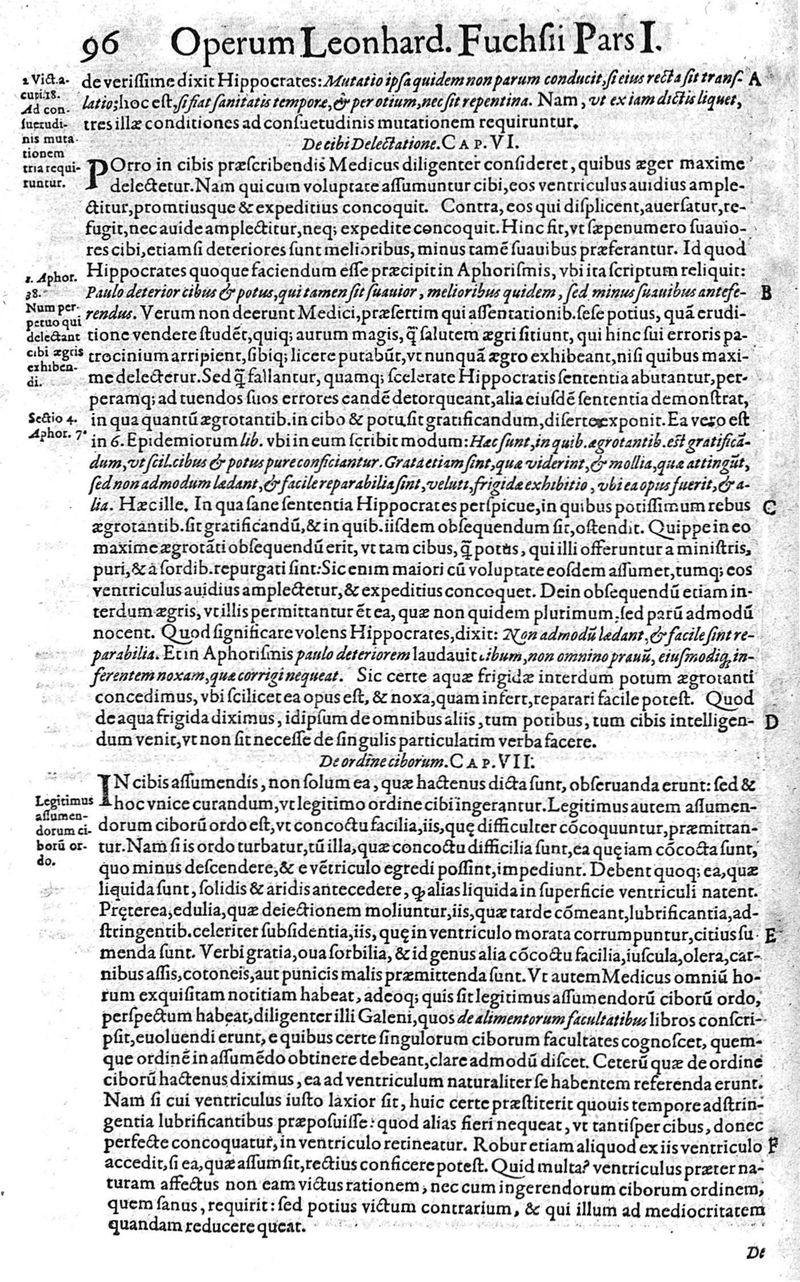 96 Operum Leonhard. Fuchsii Pars I.
1 Vict. a-
cut. 18.
Ad con-
suetudi-
nis muta
tionem
tria requi-
runtur.
de verissime dixit Hippocrates: Mutatio ipsa quidem non parum conducit, si eius recta sit trans- A
latio; hoc est, si fiat sanitatis tempore, & per otium, nec sit repentina. Nam, vt ex iam dictis liquet,
tres illæ conditiones ad consuetudinis mutationem requiruntur.
De cibi Delectatione. CAP. VI.
POrro in cibis præscribendis Medicus diligenter consideret, quibus æger maxime
delectetur. Nam qui cum voluptate assumuntur cibi, eos ventriculus auidius ample-
ctitur, promtiusque & expeditius concoquit. Contra, eos qui displicent, auersatur, re-
fugit, nec auide amplectitur, neq; expedite concoquit. Hinc fit, vt sæpenumero suauio-
res cibi, etiamsi deteriores sunt melioribus, minus tamē suauibus præferantur. Id quod
2. Aphor.
38.
Num per-
petuo qui
delectant
cibi ægris
exhiben-
di.
Hippocrates quoque faciendum esse præcipit in Aphorismis, vbi ita scriptum reliquit:
Paulo deterior cibus & potus, qui tamen sit suauior, melioribus quidem, sed minus suauibus antefe- B
rendus. Verum non deerunt Medici, præsertim qui assentationib. sese potius, quā erudi-
tione vendere studēt, quiq; aurum magis, q̃ salutem ægri sitiunt, qui hinc sui erroris pa-
trocinium arripient, sibiq; licere putabūt, vt nunquā ægro exhibeant, nisi quibus maxi-
me delectetur. Sed q̃ fallantur, quamq; scelerate Hippocratis sententia abutantur, per-
peramq; ad tuendos suos errores candē detorqueant, alia eiusdē sententia demonstrat,
Sectio 4.
Aphor. 7.
in qua quantū ægrotantib. in cibo & potu sit gratificandum, diserte exponit. Ea vero est
in 6. Epidemiorum lib. vbi in eum scribit modum: Hæc sunt, in quib. ægrotantib. est gratificā-
dum, vt scil. cibus & potus pure conficiantur. Grata etiam sint, quæ viderint, & mollia, quæ attingūt,
sed non admodum lædant, & facile reparabilia sint, veluti, frigidæ exhibitio, vbi ea opus fuerit, & a-
lia. Hæc ille. In qua sane sententia Hippocrates perspicue, in quibus potissimum rebus C
ægrotantib. sit gratificandū, & in quib. iisdem obsequendum sit, ostendit. Quippe in eo
maxime ægrotāti obsequendū erit, vt tam cibus, q̃ potus, qui illi offeruntur a ministris,
puri, & a sordib. repurgati sint: Sic enim maiori cū voluptate eosdem assumet, tumq; eos
ventriculus auidius amplectetur, & expeditius concoquet. Dein obsequendū etiam in-
terdum ægris, vt illis permittantur ēt ea, quæ non quidem plurimum, sed parū admodū
nocent. Quod significare volens Hippocrates, dixit: Non admodū lædant, & facile sint re-
parabilia. Et in Aphorismis paulo deteriorem laudauit cibum, non omnino prauū, eiusmodiq, in-
ferentem noxam, quæ corrigi nequeat. Sic certe aquæ frigidæ interdum potum ægrotanti
concedimus, vbi scilicet ea opus est, & noxa, quam infert, reparari facile potest. Quod
de aqua frigida diximus, id ipsum de omnibus aliis, tum potibus, tum cibis intelligen- D
dum venit, vt non sit necesse de singulis particulatim verba facere.
De ordine ciborum. CAP. VII.
Legitimus
assumen-
dorum ci-
borū or-
do.
IN cibis assumendis, non solum ea, quæ hactenus dicta sunt, obseruanda erunt: sed &
hoc vnice curandum, vt legitimo ordine cibi ingerantur. Legitimus autem assumen-
dorum ciborū ordo est, vt concoctu facilia, iis, quę difficulter cōcoquuntur, præmittan-
tur. Nam si is ordo turbatur, tū illa, quæ concoctu difficilia sunt, ea quę iam cōcocta sunt,
quo minus descendere, & e vētriculo egredi possint, impediunt. Debent quoq; ea, quæ
liquida sunt, solidis & aridis antecedere, q alias liquida in superficie ventriculi natent.
Pręterea, edulia, quæ deiectionem moliuntur, iis, quæ tarde cōmeant, lubrificantia, ad-
stringentib. celeriter subsidentia, iis, quę in ventriculo morata corrumpuntur, citius su- E
menda sunt. Verbi gratia, oua sorbilia, & id genus alia cōcoctu facilia, iuscula, olera, car-
nibus assis, cotoneis, aut punicis malis præmittenda sunt. Vt autem Medicus omniū ho-
rum exquisitam notitiam habeat, adeoq; quis sit legitimus assumendorū ciborū ordo,
perspectum habeat, diligenter illi Galeni, quos de alimentorum facultatibus libros conscri-
psit, euoluendi erunt, e quibus certe singulorum ciborum facultates cognoscet, quem-
que ordinē in assumēdo obtinere debeant, clare admodū discet. Ceterū quæ de ordine
ciborū hactenus diximus, ea ad ventriculum naturaliter se habentem referenda erunt.
Nam si cui ventriculus iusto laxior sit, huic certe præstiterit quouis tempore adstrin-
gentia lubrificantibus præposuisse: quod alias fieri nequeat, vt tantisper cibus, donec
perfecte concoquatur, in ventriculo retineatur. Robur etiam aliquod ex iis ventriculo F
accedit, si ea, quæ assumsit, rectius conficere potest. Quid multa? ventriculus præter na-
turam affectus non eam victus rationem, nec cum ingerendorum ciborum ordinem,
quem sanus, requirit: sed potius victum contrarium, & qui illum ad mediocritatem
quandam reducere queat.
De